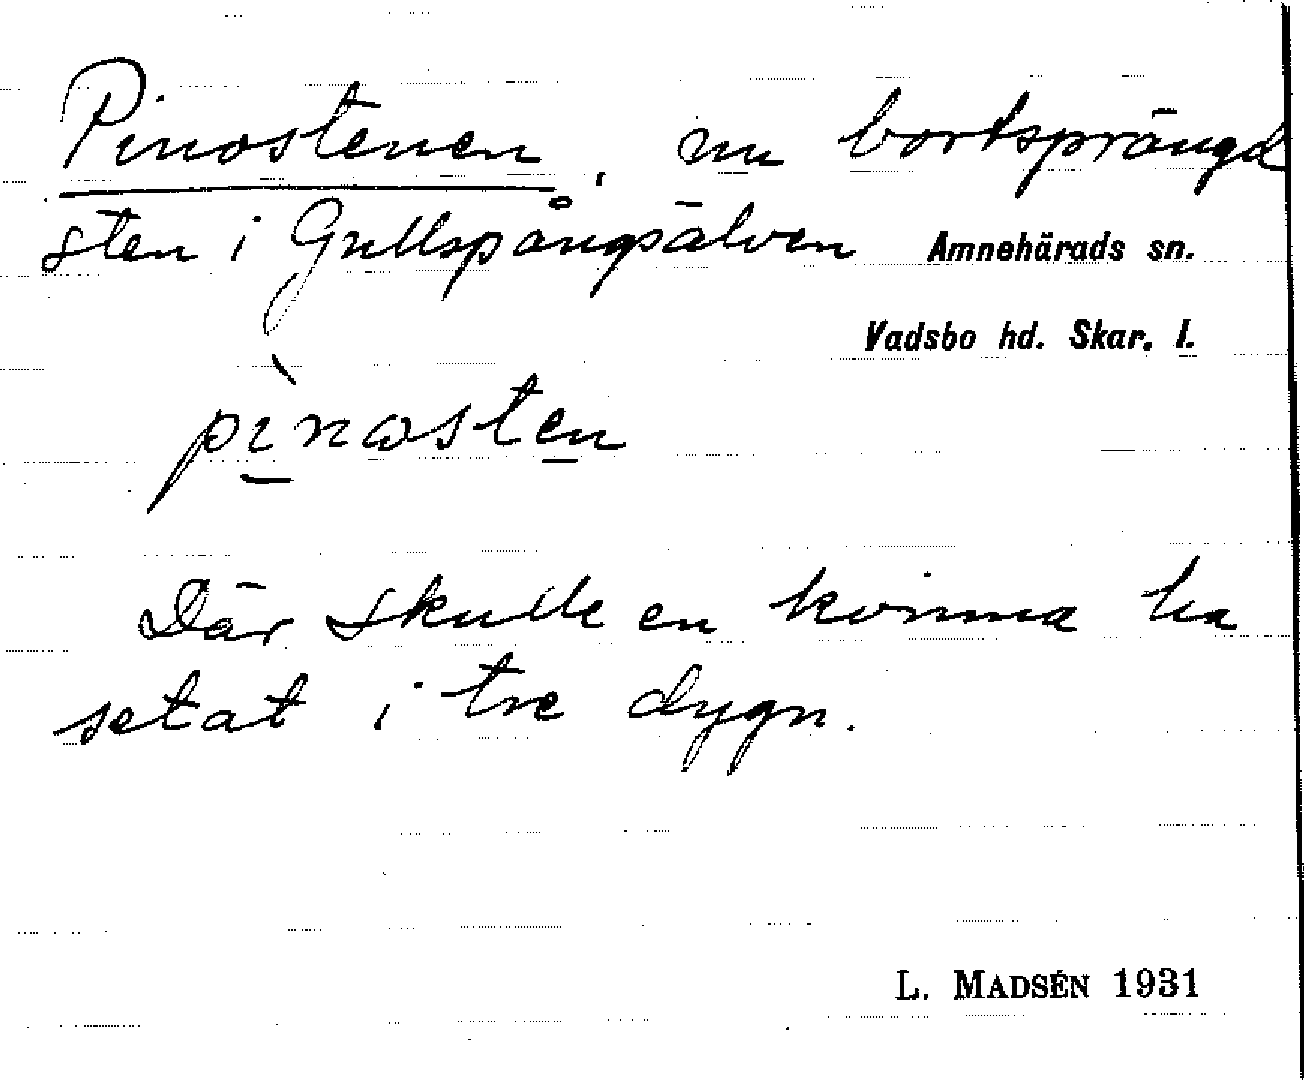 Pinostenen, nu bortsprängd
sten i Gullspångsälven
Amnehärads sn.
Vadsbo hd. Skar. l.
pìnωsten
Där skulle en kvinna ha
setat i tre dygn.
L. MADSÉN 1931